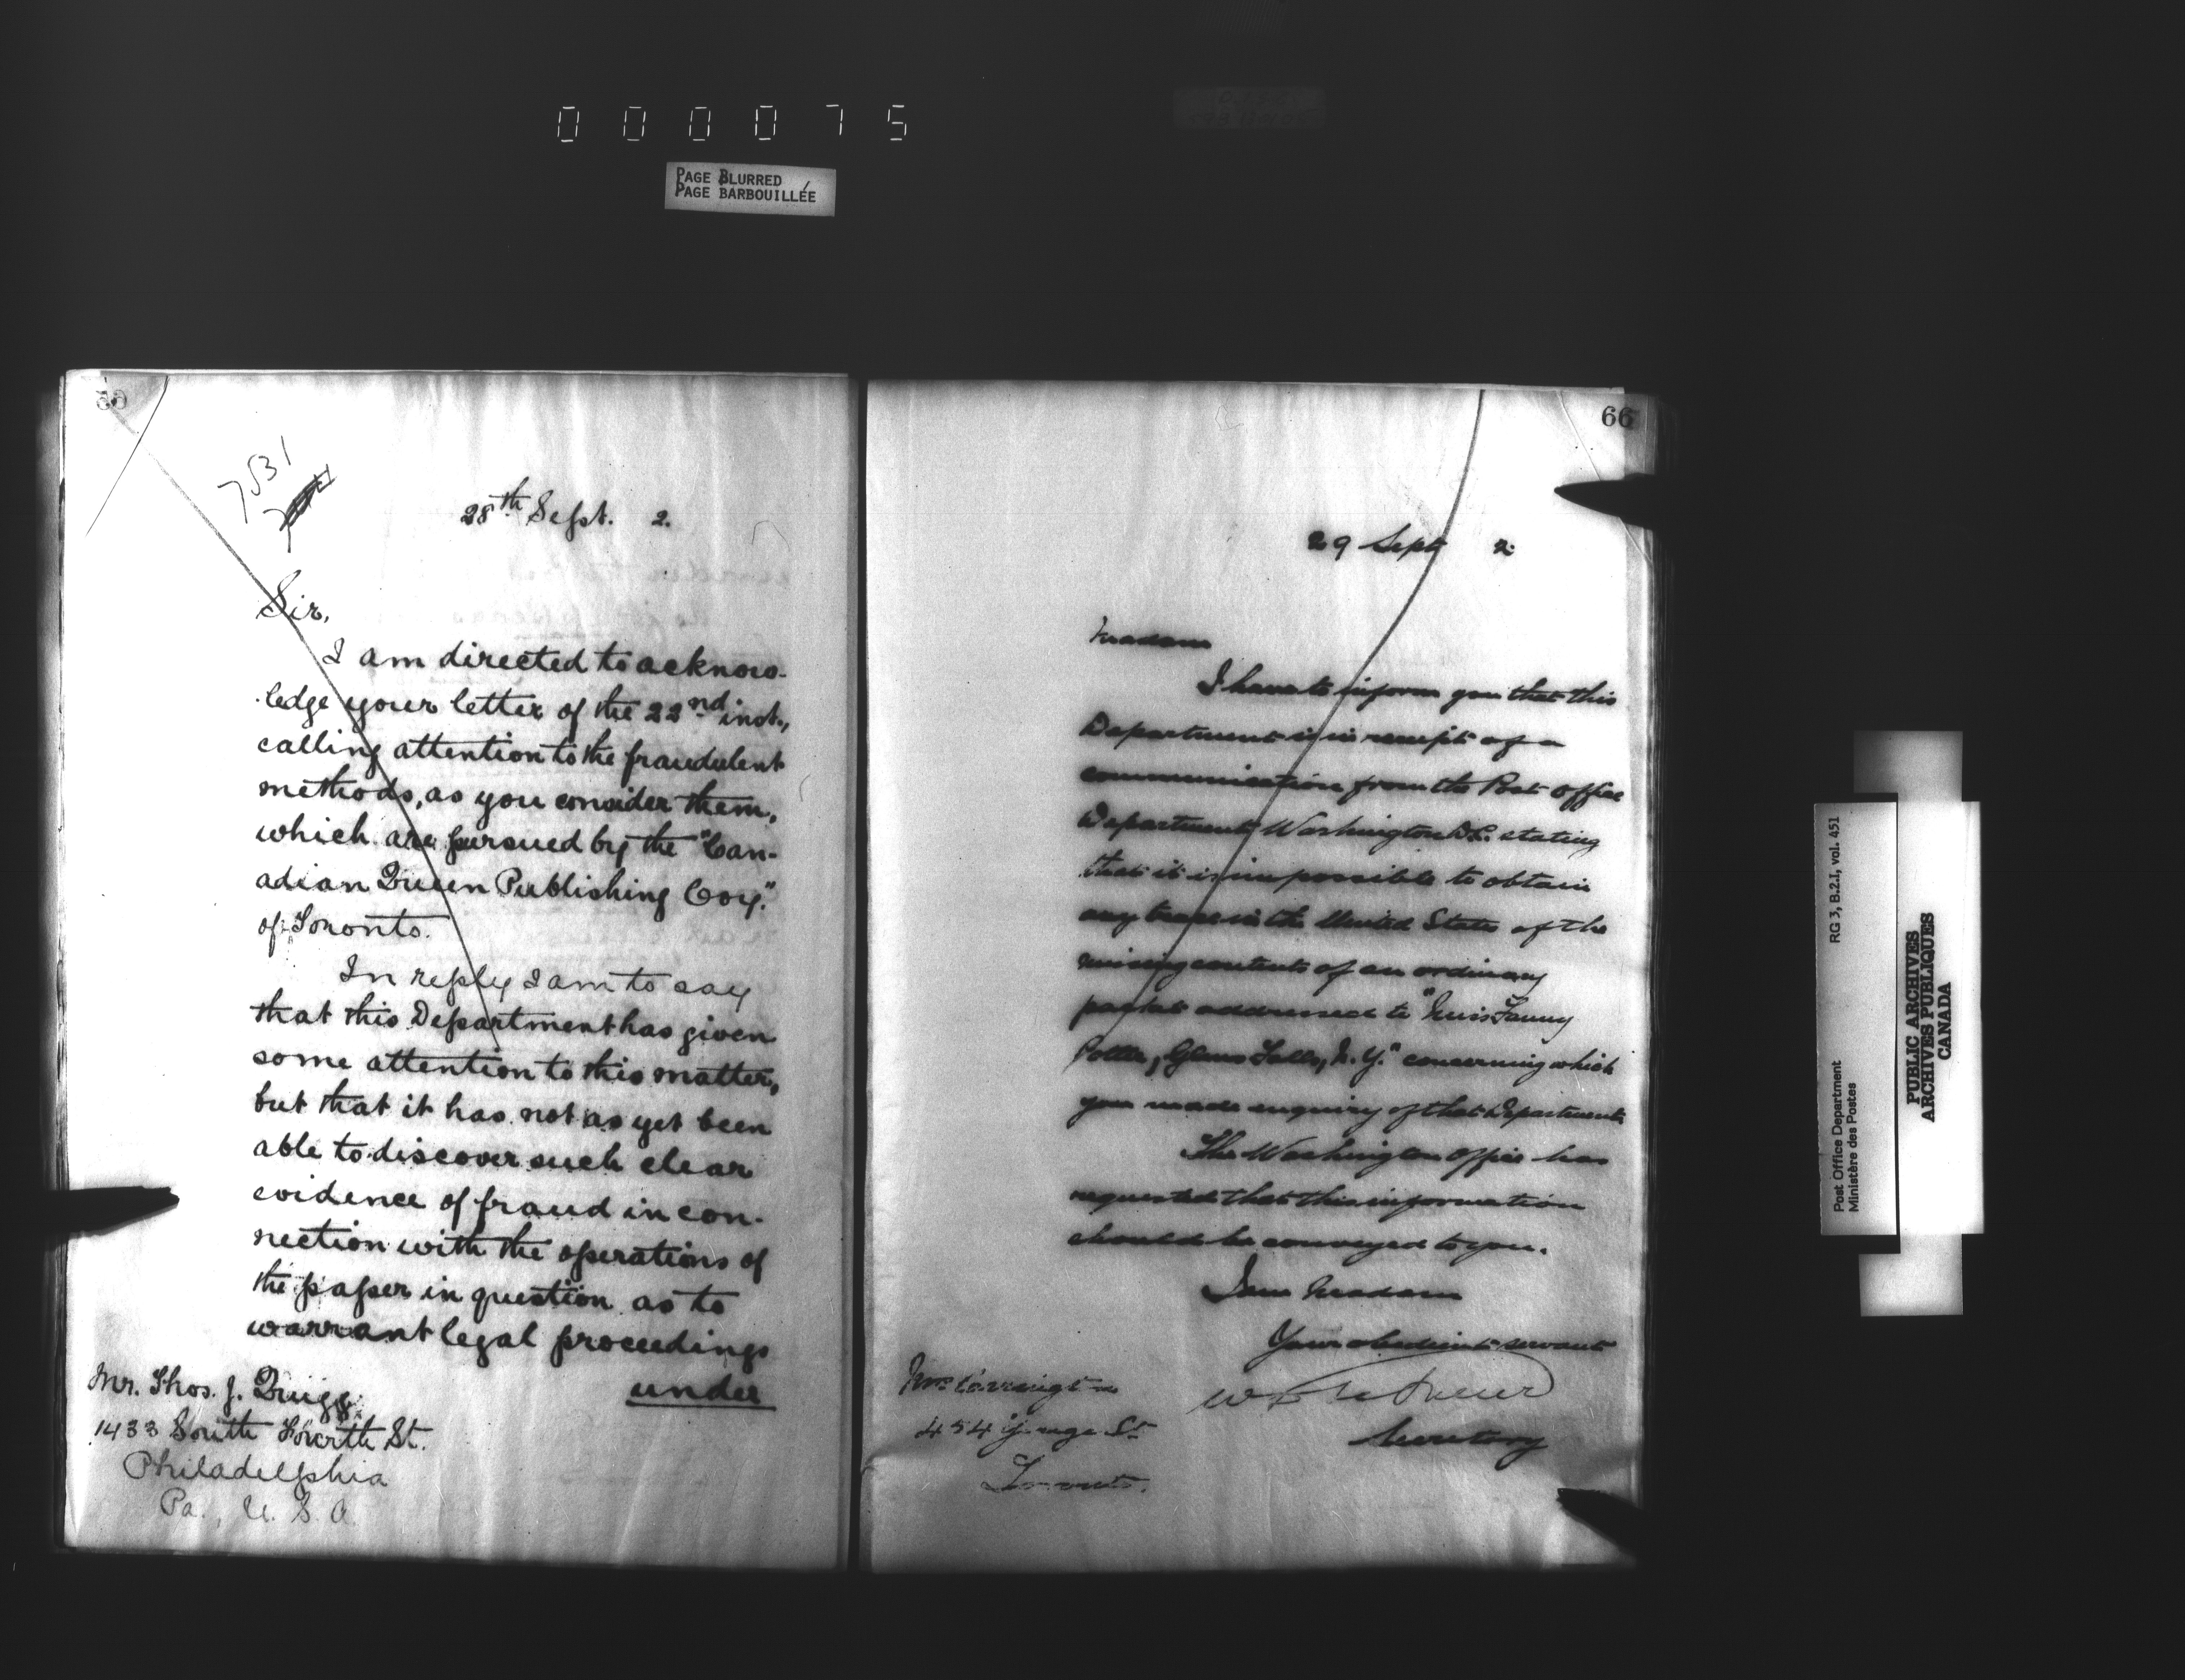 000075
PAGE BLURRED
PAGE BARBOUILLÉE
7531
28th Sept. 2.
Sir,
I am directed to acknow-
ledge your letter of the 22nd inst.,
calling attention to the fraudulent
methods, as you consider them,
which are pursued by the "Can-
adian Queen Publishing Coy."
of Toronto.
In reply I am to say
that this Department has given
some attention to this matter,
but that it has not as yet been
able to discover such clear
evidence of fraud in con-
nection with the operations of
the paper in question as to
warrant legal proceedings
under
Mr. Thos. J. Quigg
1433 South Fourth St.
Philadelphia
Pa., U. S. A.
66
29 Sept 2
Madam
I have to inform you that this
Department is in receipt of a
communication from the Post Office
Department Washington D.C. stating
that it is impossible to obtain
any trace in the United States of the
missing contents of an ordinary
packet addressed to "Miss Fanny
Glens Falls, N. Y." concerning which
you made enquiry of that Department
The Washington Office has
requested that this information
should be conveyed to you.
I am Madam
Your obedient servant
Secretary
Mrs Carrington
454 Yonge St
Toronto.
Post Office Department
Ministère des Postes
RG 3, B.2.I, vol. 451
PUBLIC ARCHIVES
ARCHIVES PUBLIQUES
CANADA